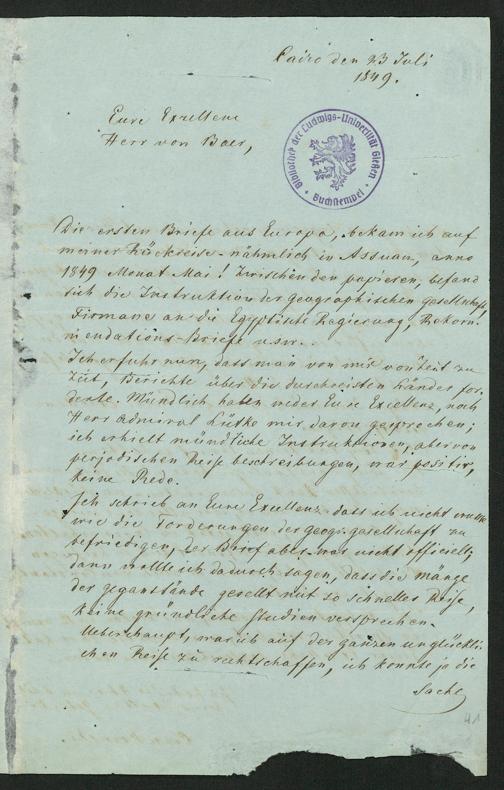 Cairo den 23 Juli
1849.
Eure Exellenz
Herr von Baer,
Bibliothek der Ludwigs-Universität Gießen
Buchstempel
Die ersten Briefe aus Europa, bekam ich auf
meiner Rückreise - nähmlich in Assuan, anno
1849 Monat Mai! Zwischen den papieren, befand
sich die Instruktion der geographischen gesellschaft,
Firmane an die Egyptische Regierung, Rekom-
mendations-Briefe u.s.w. . .
Ich erfuhr nun, dass man von mir von Zeit zu
Zeit, Berichte über die durchreisten Länder for-
derte. Mündlich haben weder Eure Excellenz, noch
Herr Admiral Lütke mir davon gesprochen;
ich erhielt mündliche Instruktionen, aber von
perjodischen Reise beschreibungen, war positiv,
keine Rede.
Ich schrieb an Eure Excellenz dass ich nicht
wie die Forderungen der geogr. gesellschaft zu
befriedigen, der Brief aber war nicht officiell;
dann wollte ich dadurch sagen, dass die mänge
der gegenstände gesellt mit so schneller Reise,
keine gründliche Studien versprechen.
Ueberhaupt, war ich auf der ganzen unglückli-
chen Reise zu rechtschaffen, ich konnte ja die
Sache
41